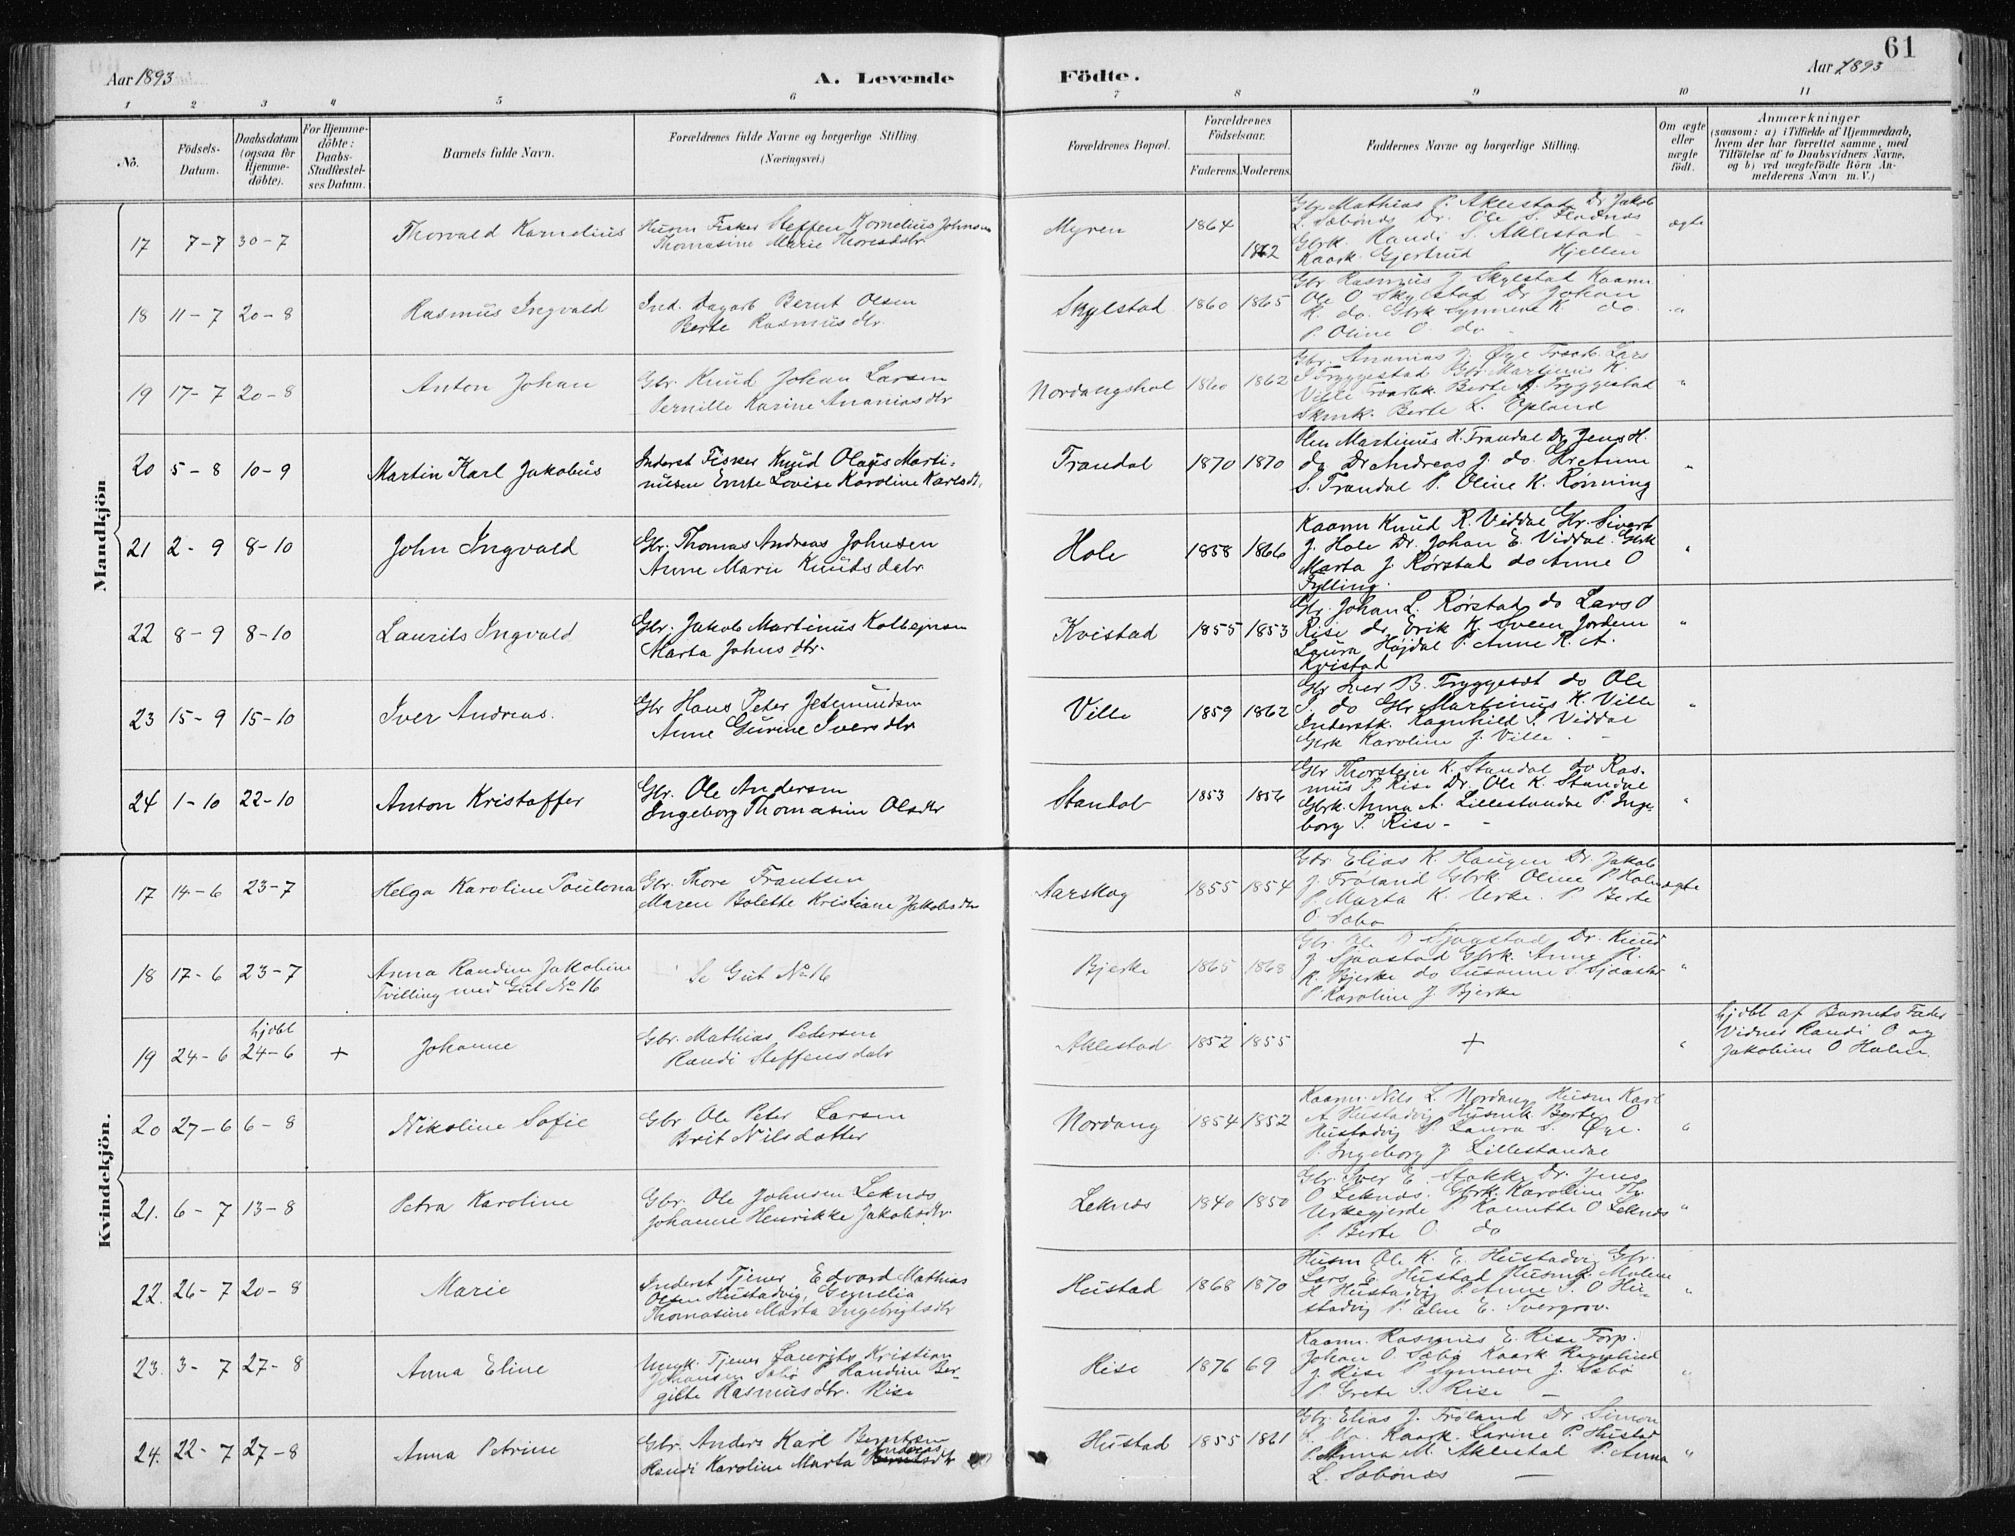 61
Aar 1893
A. Levende
Födte.
Aar 1893
1 2 3 4 5 6 7 8 9 10 11
Nô.
Födsels-
Datum.
Daabsdatum
(ogsaa for
Hjemme-
döbte).
For Hjemme-
döbte:
Daabs-
Stadfæstel-
ses Datum.
Barnets fulde Navn.
Forældrenes fulde Navne og borgerlige Stilling
(Næringsvei.)
Forældrenes Bopæl.
Forældrenes
Födselsaar.
Faderens.
Moderens.
Faddernes Navne og borgerlige Stilling.
Om ægte
eller
uægte
födt.
Anmærkninger
(saasom: a) i Tilfælde af Hjemmedaab,
hvem der har forrettet samme, med
Tilföielse af to Daabsvidners Navne,
og b) ved uægtefödte Börn An-
melderens Navn m. V.)
Mandkjön
17 7-7 30-7 Thorvald Kornelius
Husm Fisker Steffen Kornelius Johnsen
Thomasine Marie Thoresdtr
Myren 1864 1862
Gbr Mathias P. Aklestad Dr Jakob
L. Sæbönæs Dr. Ole S. Fladnæs
Gbrk. Randi S. Aklestad
Kaark. Gjertrud Hjellen
ægte
18 11-7 20-8 Rasmus Ingvald
Ind. Dagarb Bernt Olsen
Berte Rasmusdtr.
Skylstad 1860 1865
Gbr Rasmus J Skylstad Kaarm
Ole O Skylstad Dr Johan
K. do. Gbrk Synneve K. do.
P. Oline O. do -
"
19 17-7 20-8 Anton Johan
Gbr. Knud Johan Larsen
Pernille Karine Ananiasdtr
Nordangshol 1860 1862
Gbr. Ananias J. Øye Lars
J Tryggestad Gbr. Martinus K.
Ville Berte Tryggestad
Berte L.
"
20 5-8 10-9 Martin Karl Jakobus
Inderst Fisker Knud Olaus Marti-
nusen Lovise Karoline Karlsdt.
Trandal 1870 1870
Martinus H. Trandal Dr Jens H.
do Dr Andreas J. do.
S. Trandal P. Oline K. Rönning
"
21 2-9 8-10 John Ingvald
Gbr. Thomas Andreas Johnsen
Anne Marie Knudsdatr
Hole 1858 1866
Kaarm Knud R. Viddal Gbr. Sivert
J. Hole Dr. Johan E. Viddal. Gbrk
Marta J. Rörstad do Anne O
Fylling.
"
22 8-9 8-10 Laurits Ingvald
Gbr. Jakob Martinus Kolbejnsen
Marta Johnsdtr.
Kvistad 1855 1853
Gbr. Johan L. Rörstad do Lars O
Rise dr. Erik K. Jordem
Laura Højdal P. Anne R. A.
Kvistad
"
23 15-9 15-10 Iver Andreas.
Gbr Hans Peter Jetmundsen
Anne Gurine Iversdtr
Ville 1859 1862
Gbr Iver B. Tryggestad do Ole
J. do Gbr Martinus K. Ville
Inderstk. Ragnhild S. Viddal
Gbrk Karoline J. Ville. -
"
24 1-10 22-10 Anton Kristoffer
Gbr. Ole Andersen
Ingeborg Thomasine Olsdtr
Standal 1853 1856
Gbr Thorstein K. Standal do Ras-
mus P. Rise Dr. Ole K. Standal
Gbrk. Anna A. Lillestandal P. Inge-
borg P. Rise - -
"
Kvindekjön.
17 14-6 23-7 Helga Karoline Paulona
Gbr. Thore Frantsen
Maren Bolette Kristiane Jakobsdtr
Aarskog 1855 1854
Gbr. Elias K. Haugen Dr. Jakob
J. Fröland Gbrk. Oline P. Holm
P. Marta K. Urke. P. Berte
O. Sæbø
ægte
18 17-6 23-7 Anna Randine Jakobine
Tvilling med Gut No 16
Se Gut No 16
Bjerke 1865 1868
Gbr. Ole Sjaastad Dr. Knud
J Sjaastad Gbrk. Anne K.
K. Bjerke do Susanne S. Sjaastad
P Karoline J. Bjerke
"
19 24-6 hjdbt 24-6 + Johanne
Gbr. Mathias Pedersen
Randi Steffensdatr
Aklestad 1852 1855 + "
hjdbt af Barnets Fader
Vidner Randi O og
Jakobine O Holm.
20 27-6 6-8 Nikoline Sofie
Gbr Ole Peter Larsen
Brit Nilsdatter
Nordang 1854 1852
Kaarm. Nils L. Nordang Husm Karl
A Hustadvig Husmk Berte O
Hustadvig P Laura S. Øye.
P. Ingeborg J. Lillestandal
"
21. 6-7 13-8 Petra Karoline
Gbr. Ole Johnsen Leknæs
Johanne Henrikke Jakobsdtr.
Leknæs 1840 1850
Gbr. Iver E. Stokke Dr. Jens
O Leknæs. Gbrk. Karoline
Urkegjerde P Hanette O Leknæs
P. Berte O. do
"
22. 26-7 20-8 Marie
Inderst Tjener Edvard Mathias
Olsen Hustadvig,
Thomasine Marta Ingebrigtsdtr
Hustad 1868 1870
Husm Ole K. E. Hustadvig Gbr.
Lars E. Hustad Husmk. Malene
H Hustadvig P. Anne S. O Hu-
stadvig P. Eline E. Tvergrov.
"
23. 3-7 27-8 Anna Eline
Ungk. Tjener Laurits Kristian
Johansen Sæbö P Randine Ber-
gitte Rasmusdtr. Rise
Rise 1876 69
Kaarm. Rasmus E. Rise Forp.
Johan O. Sæbö Kaark Ragnhild
J. Rise P Synneve J. Sæbö
P. Grete P. Rise -
"
24. 22-7 27-8 Anna Petrine
Gbr. Anders Karl Berntsen
Randi Karoline Marta Andreasdtr
Hustad 1855 1861
Gbr. Elias J. Fröland Dr. Simon
Kaark. Larine P. Hustad
P. Anna M. Aklestad P. Anna
L. Sæbönæs -
"